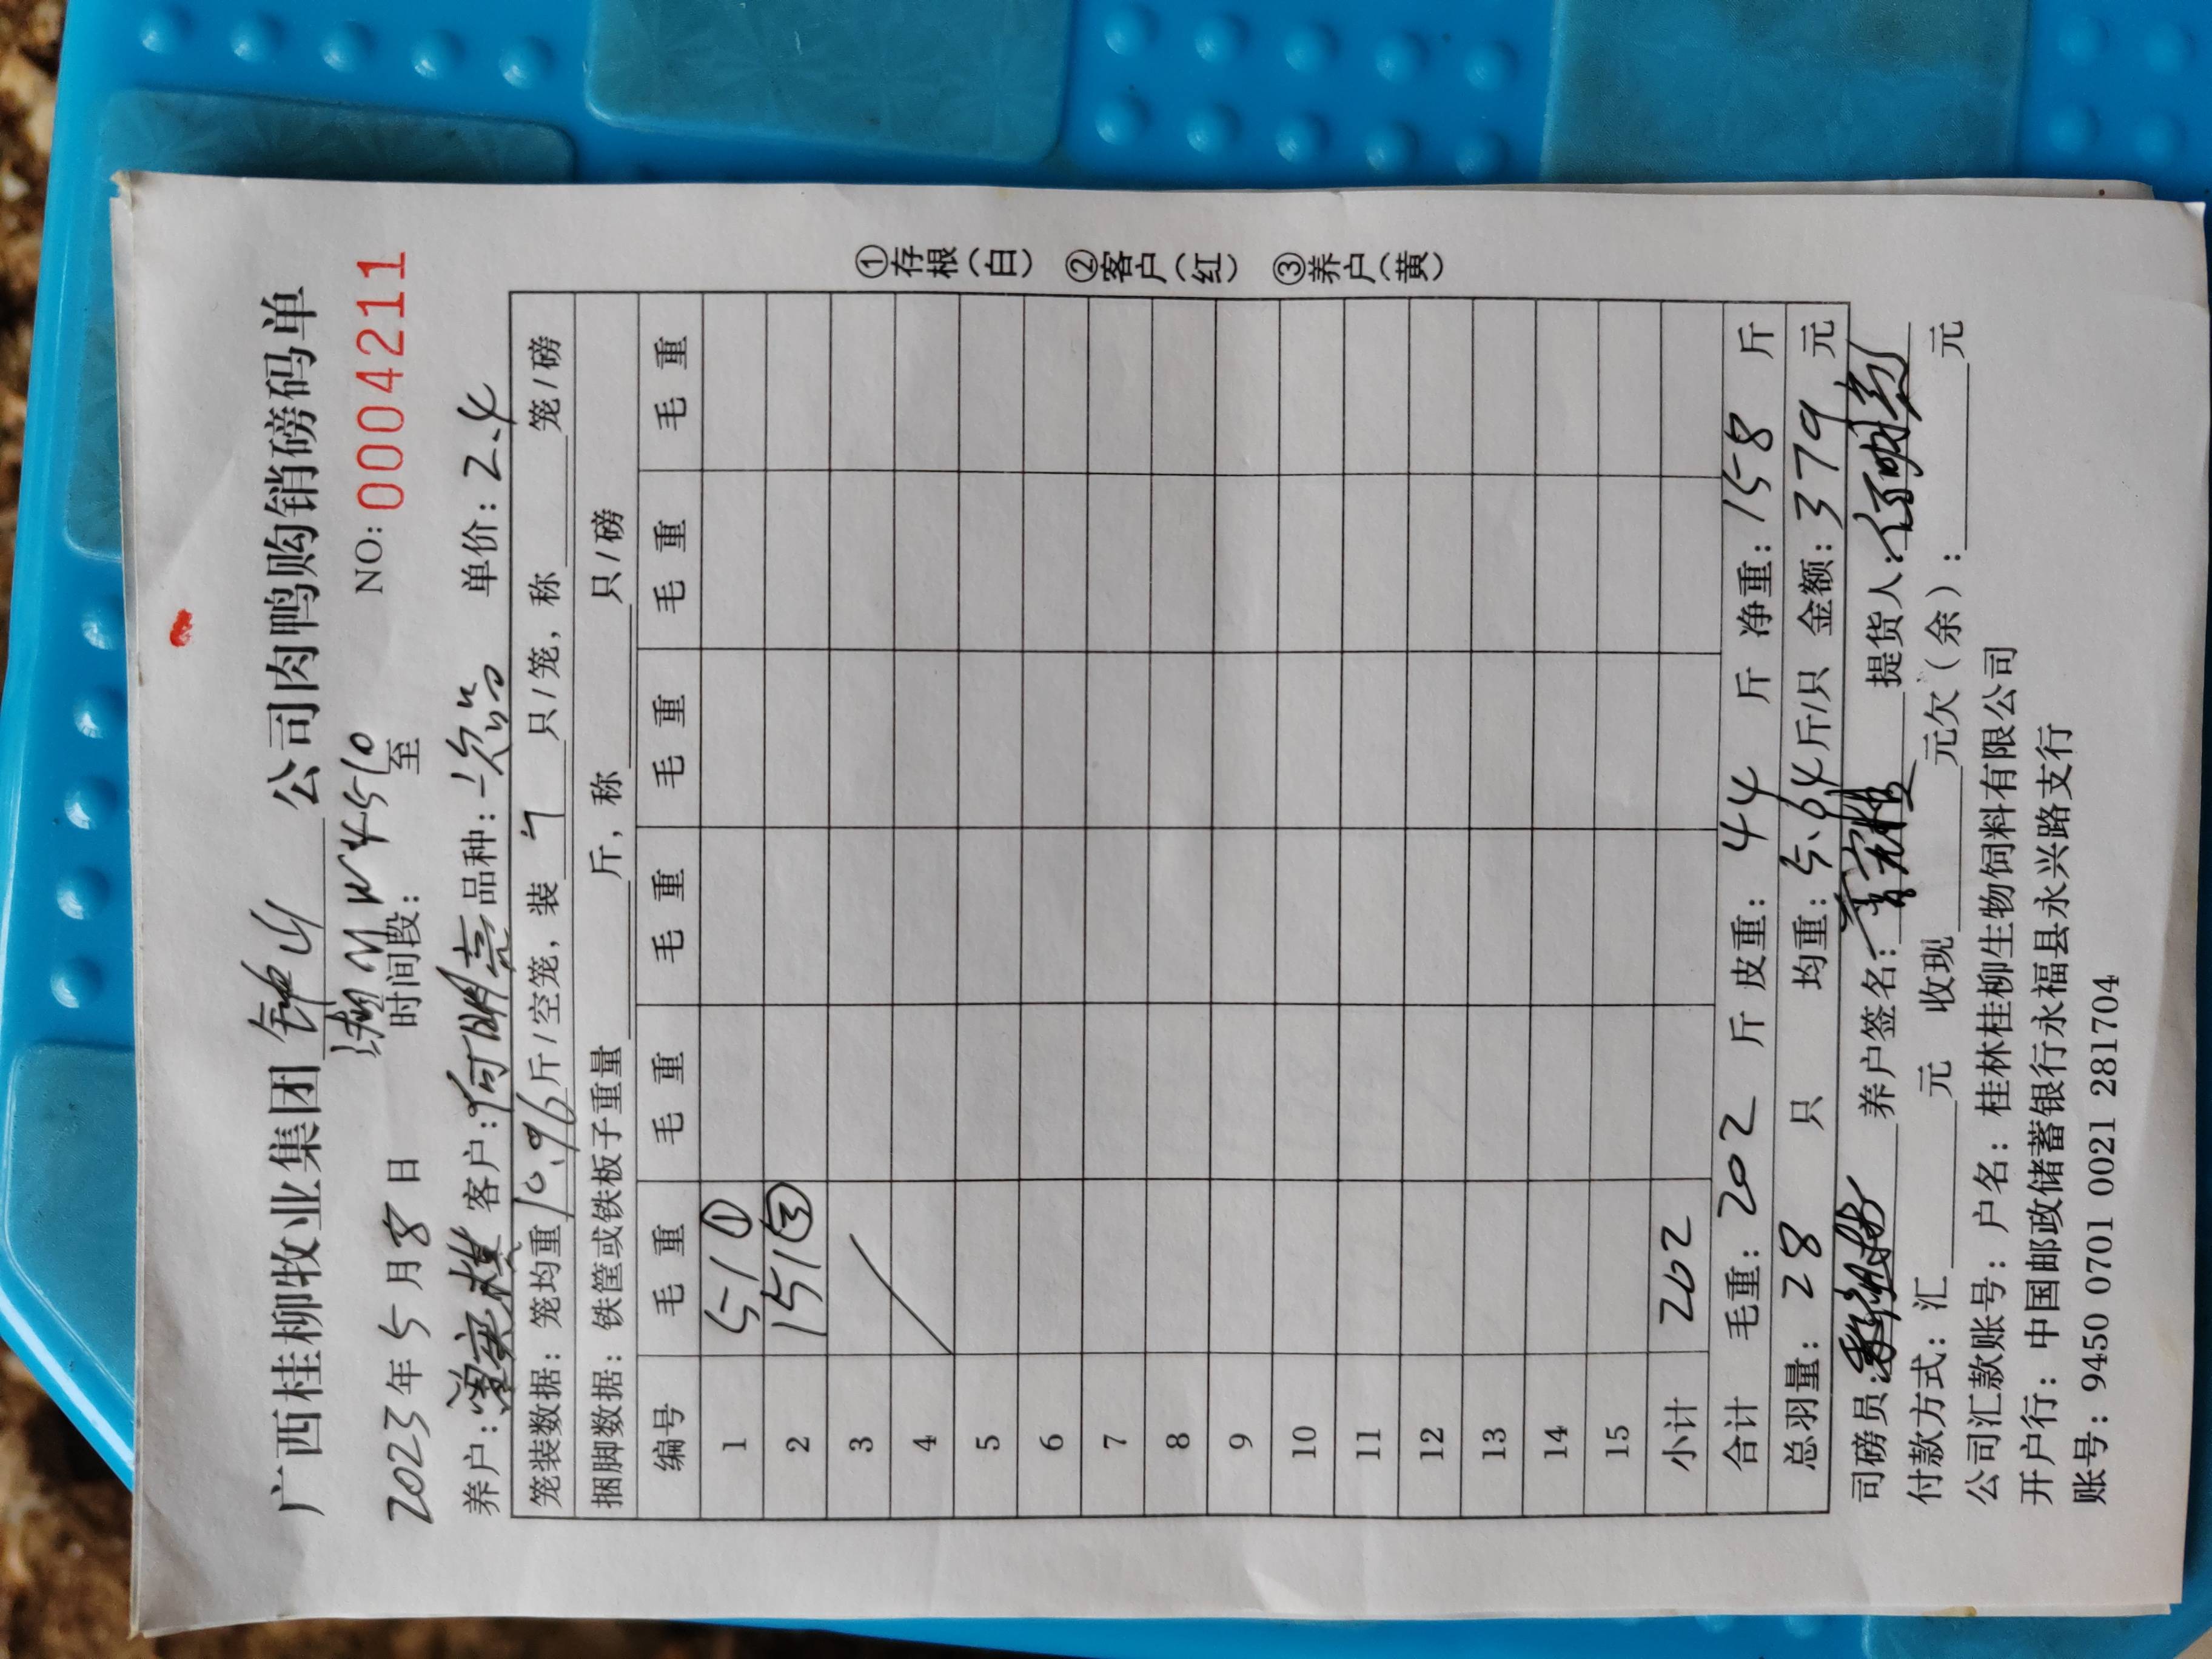 广西桂柳牧业集团 钟山 公司肉鸭购销磅码单
NW4510
2023年5月8日 时间段： 至 NO:0004211
养户： 客户：何明亮 品种：次品 单价：2.4
笼装数据：笼均重10.96斤/空笼，装7只/笼，称 笼/磅
捆脚数据：铁筐或铁板子重量 斤，称 只/磅
编号 毛重 毛重 毛重 毛重 毛重 毛重
1 51①
2 151③
3
4
5
6
7
8
9
10
11
12
13
14
15
小计 202
合计 毛重：202 斤 皮重：44 斤 净重：158 斤
总羽量：28 只 均重：5.64斤/只 金额：379元
司磅员： 养户签名： 提货人：何明亮
付款方式：汇 元 收现 元欠（余）： 元
公司汇款账号：户名：桂林桂柳生物饲料有限公司
开户行：中国邮政储蓄银行永福县永兴路支行
账号：9450 0701 0021 281704
①存根（白） ②客户（红） ③养户（黄）